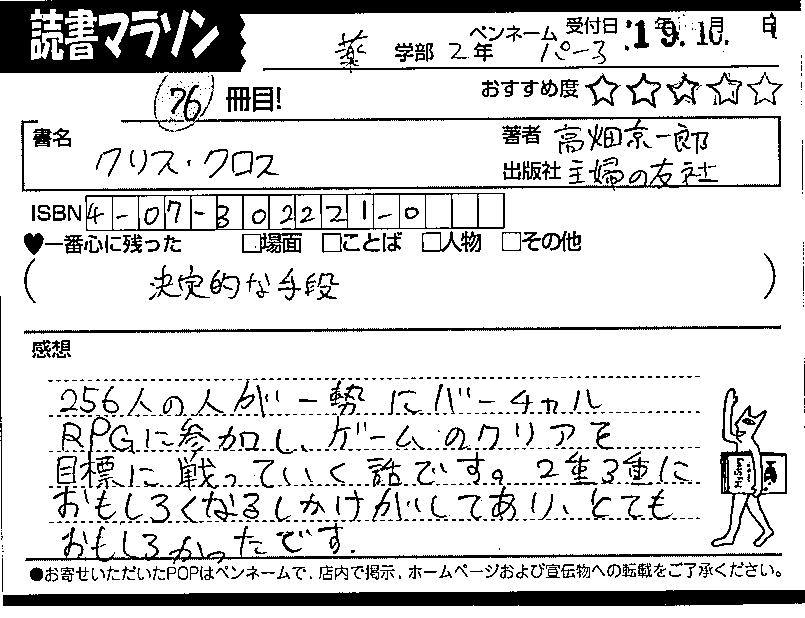 読書マラソン
薬 学部 2年 ペンネーム パーコ 受付日 '19.10. 年 月 日
76 冊目! おすすめ度 ☆☆☆☆☆
書名 クリス・クロス
著者 高畑京一郎
出版社 主婦の友社
ISBN 4-07-302221-0
♥一番心に残った □場面 □ことば □人物 □その他
( 決定的な手段 )
感想
256人の人が一勢にバーチャル
RPGに参加し、ゲームのクリアを
目標に戦っていく話です。2重3重に
おもしろくなるしかけがしてあり、とても
おもしろかったです.
●お寄せいただいたPOPはペンネームで、店内で掲示、ホームページおよび宣伝物への転載をご了承ください。